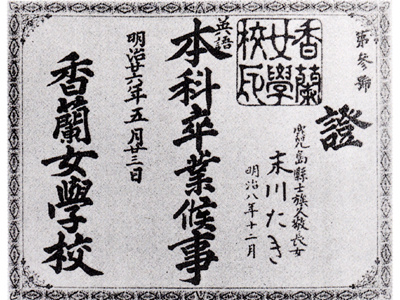 第參號
證
鹿児島縣士族久敬長女
末川たき
明治八年十二月
香蘭
女學
校印
英語
本科卒業候事
明治廿六年五月廿三日
香蘭女學校